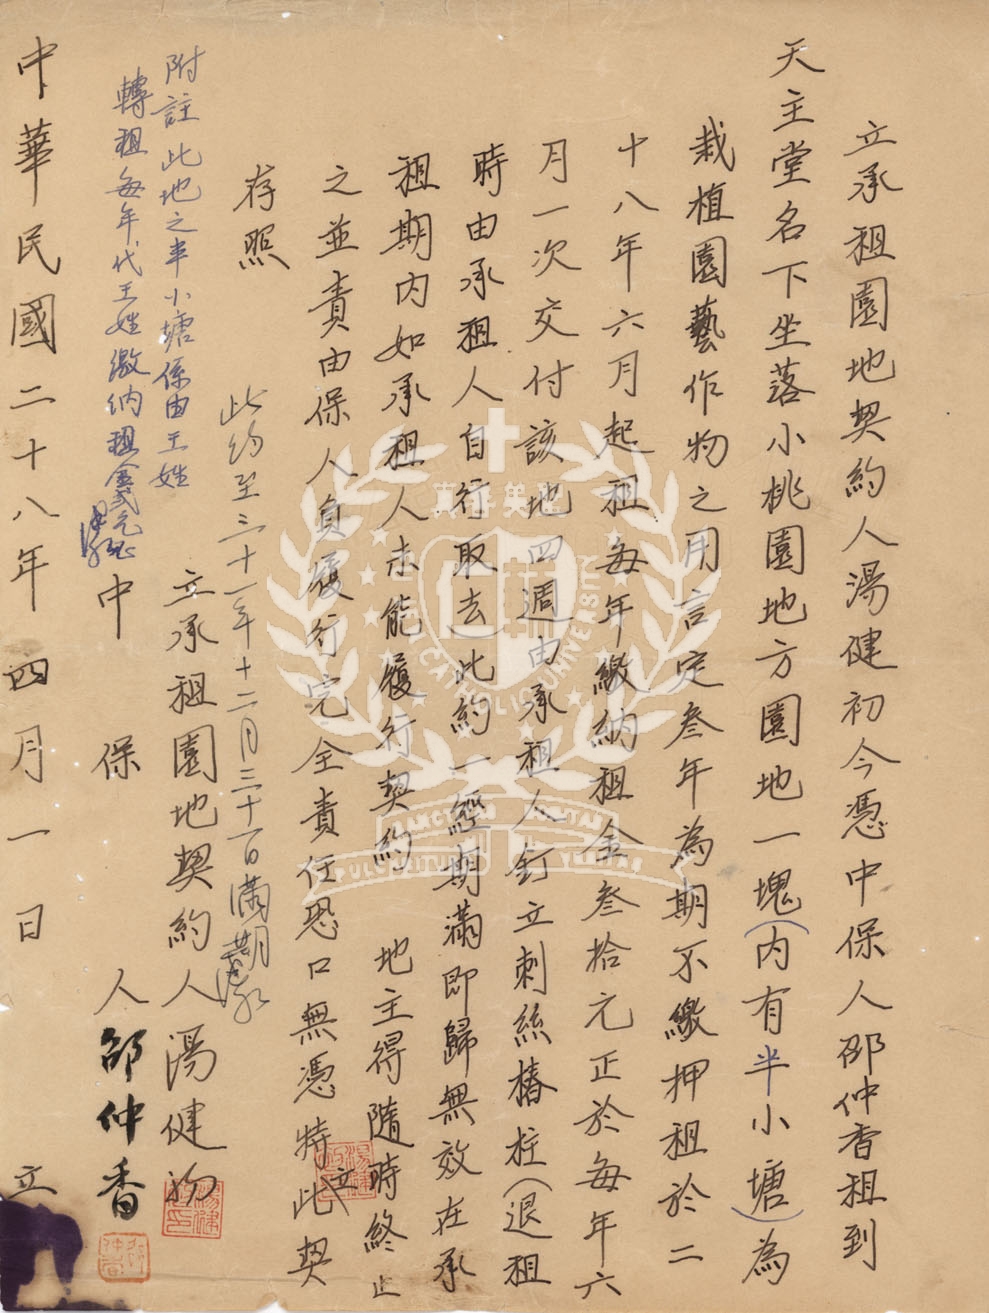 立承租園地契約人湯健初今憑中保人邵仲香租到
天主堂名下坐落小桃園地方園地一塊(內有半小塘)為
栽植園藝作物之用言定叁年為期不繳押租於二
十八年六月起租每年繳納租金叁拾元正於每年六
月一次交付該地四週由承租人釘立刺絲樁柱(退租
時由承租人自行取去)此約一經期滿即歸無效在承
租期內如承租人未能履行契約 地主得隨時終止
之並責由保人負履行完全責任恐口無憑特立此契
存照
此約至三十一年十二月三十一日滿期
立承租園地契約人湯健初
附註此地之半小塘係由王姓
轉租每年代王姓繳納租金弍元
中 保 人 邵仲香
中華民國二十八年四月一日 立